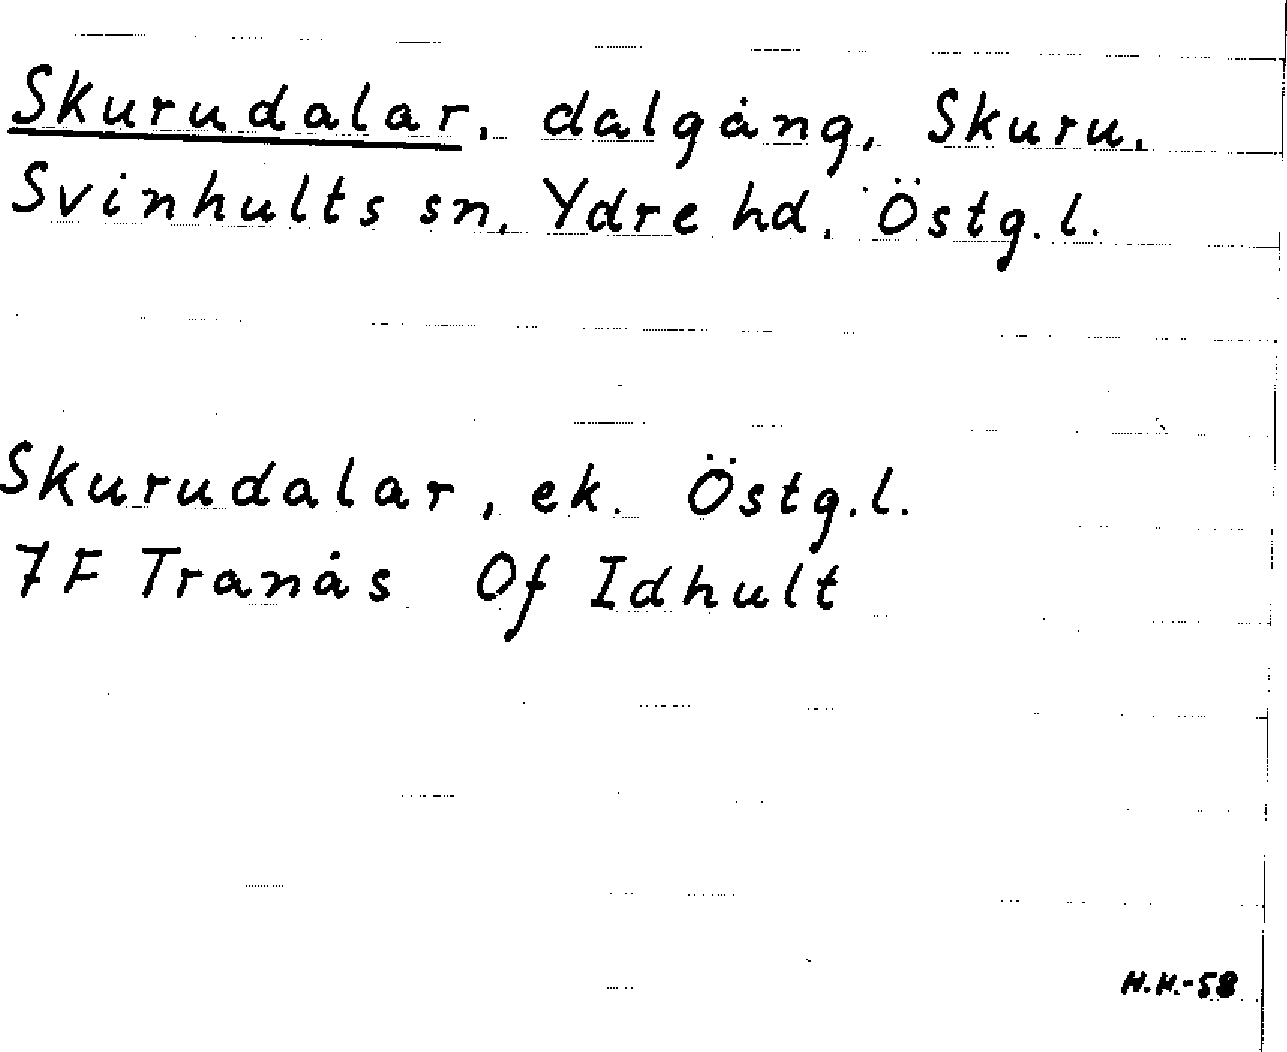 Skurudalar, dalgång, Skuru,
Svinhults sn, Ydre hd, Östg.l.
Skurudalar, ek. Östg.l.
7F Tranås Of Idhult
H.H.-58